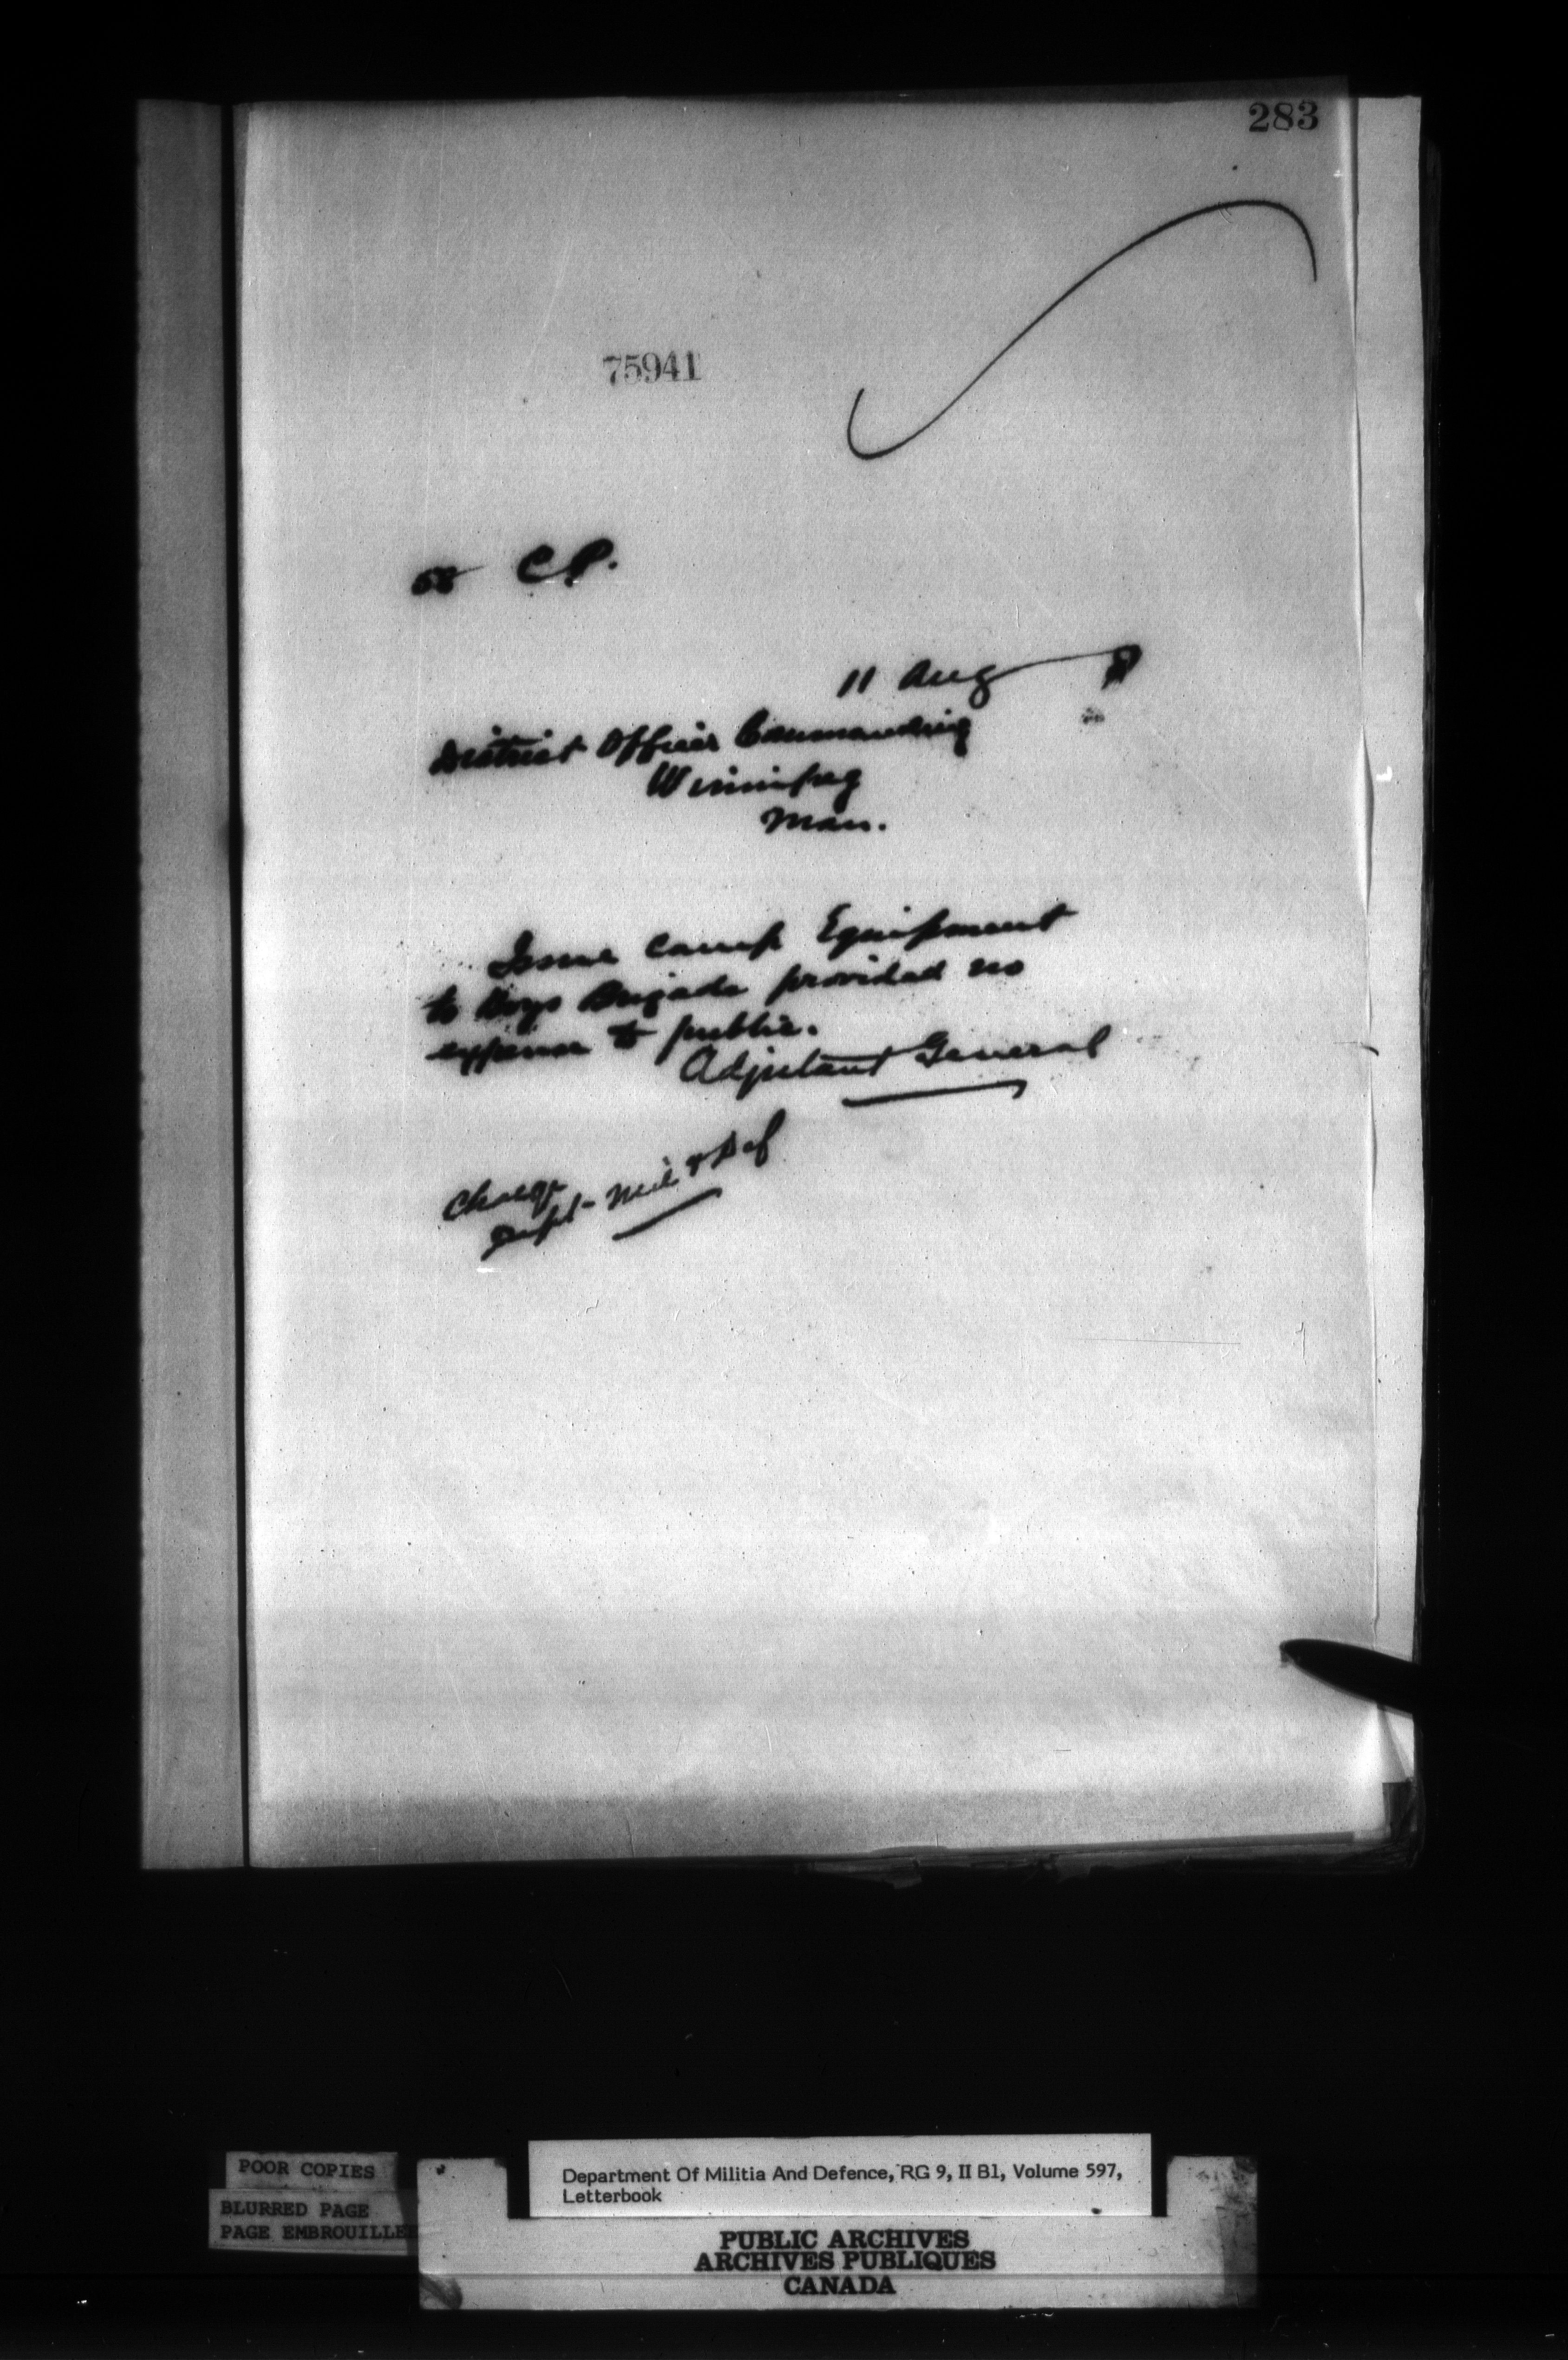 283
75941
C.P.
11 Aug
District Officer Commanding
Winnipeg
Man.
Issue Camp Equipment
to Boys Brigade provided no
expense to public.
Adjutant General
Charge
Dept- Mil & Def
POOR COPIES
BLURRED PAGE
PAGE EMBROUILLEE
Department Of Militia And Defence, RG 9, II B1, Volume 597,
Letterbook
PUBLIC ARCHIVES
ARCHIVES PUBLIQUES
CANADA